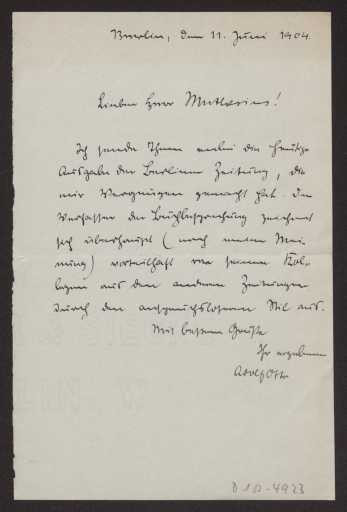 Breslau, den 11. Juni 1904.
Lieber Herr Muthesius!
Ich sende Ihnen anbei die heutige
Ausgabe der Berliner Zeitung, die
mir Vergnügen gemacht hat. Der
Verfasser der Buchbesprechung zeichnet
sich überhaupt (nach meiner Mei-
nung) vorteilhaft vor seinen Kol-
legen aus den anderen Zeitungen
durch den anspruchsloseren Stil aus.
Mit bestem Gruße
Ihr ergebener
D 102-4923